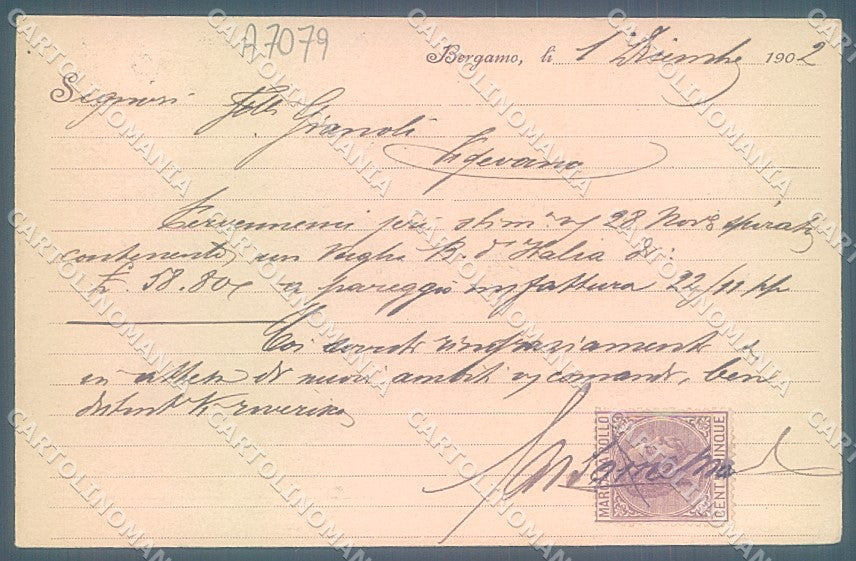 A7079
Bergamo, li 1 Dicembre 1902
Signori Flli Gianoli
Vigevano
Pervennemi jeri stim. 28 Nov. spirato
contenente un Vaglia B. d'Italia di
£. 58.80 a pareggio fattura 22/11 pp
Coi dovuti ringraziamenti e
in attesa di nuovi ambiti comandi, ben
distint
MARCA DA BOLLO
CENT. CINQUE
CARTOLINOMANIA